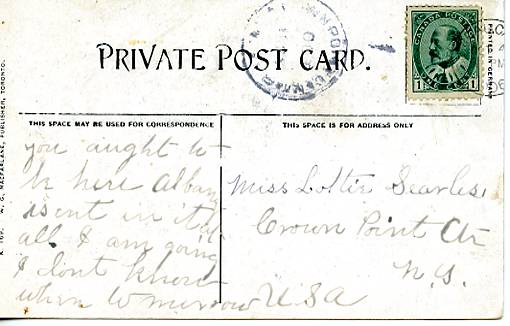 PRIVATE POST CARD.
CANADA POSTAGE
1 1
PRINTED IN GERMANY
W. G. MACFARLANE, PUBLISHER, TORONTO.
THIS SPACE MAY BE USED FOR CORRESPONDENCE
you aught to
be here Albany
isent in it at
all I am going
I dont know
when to murrow
THIS SPACE IS FOR ADDRESS ONLY
Miss Lottie Searles
Crown Point Ctr
N.Y.
USA